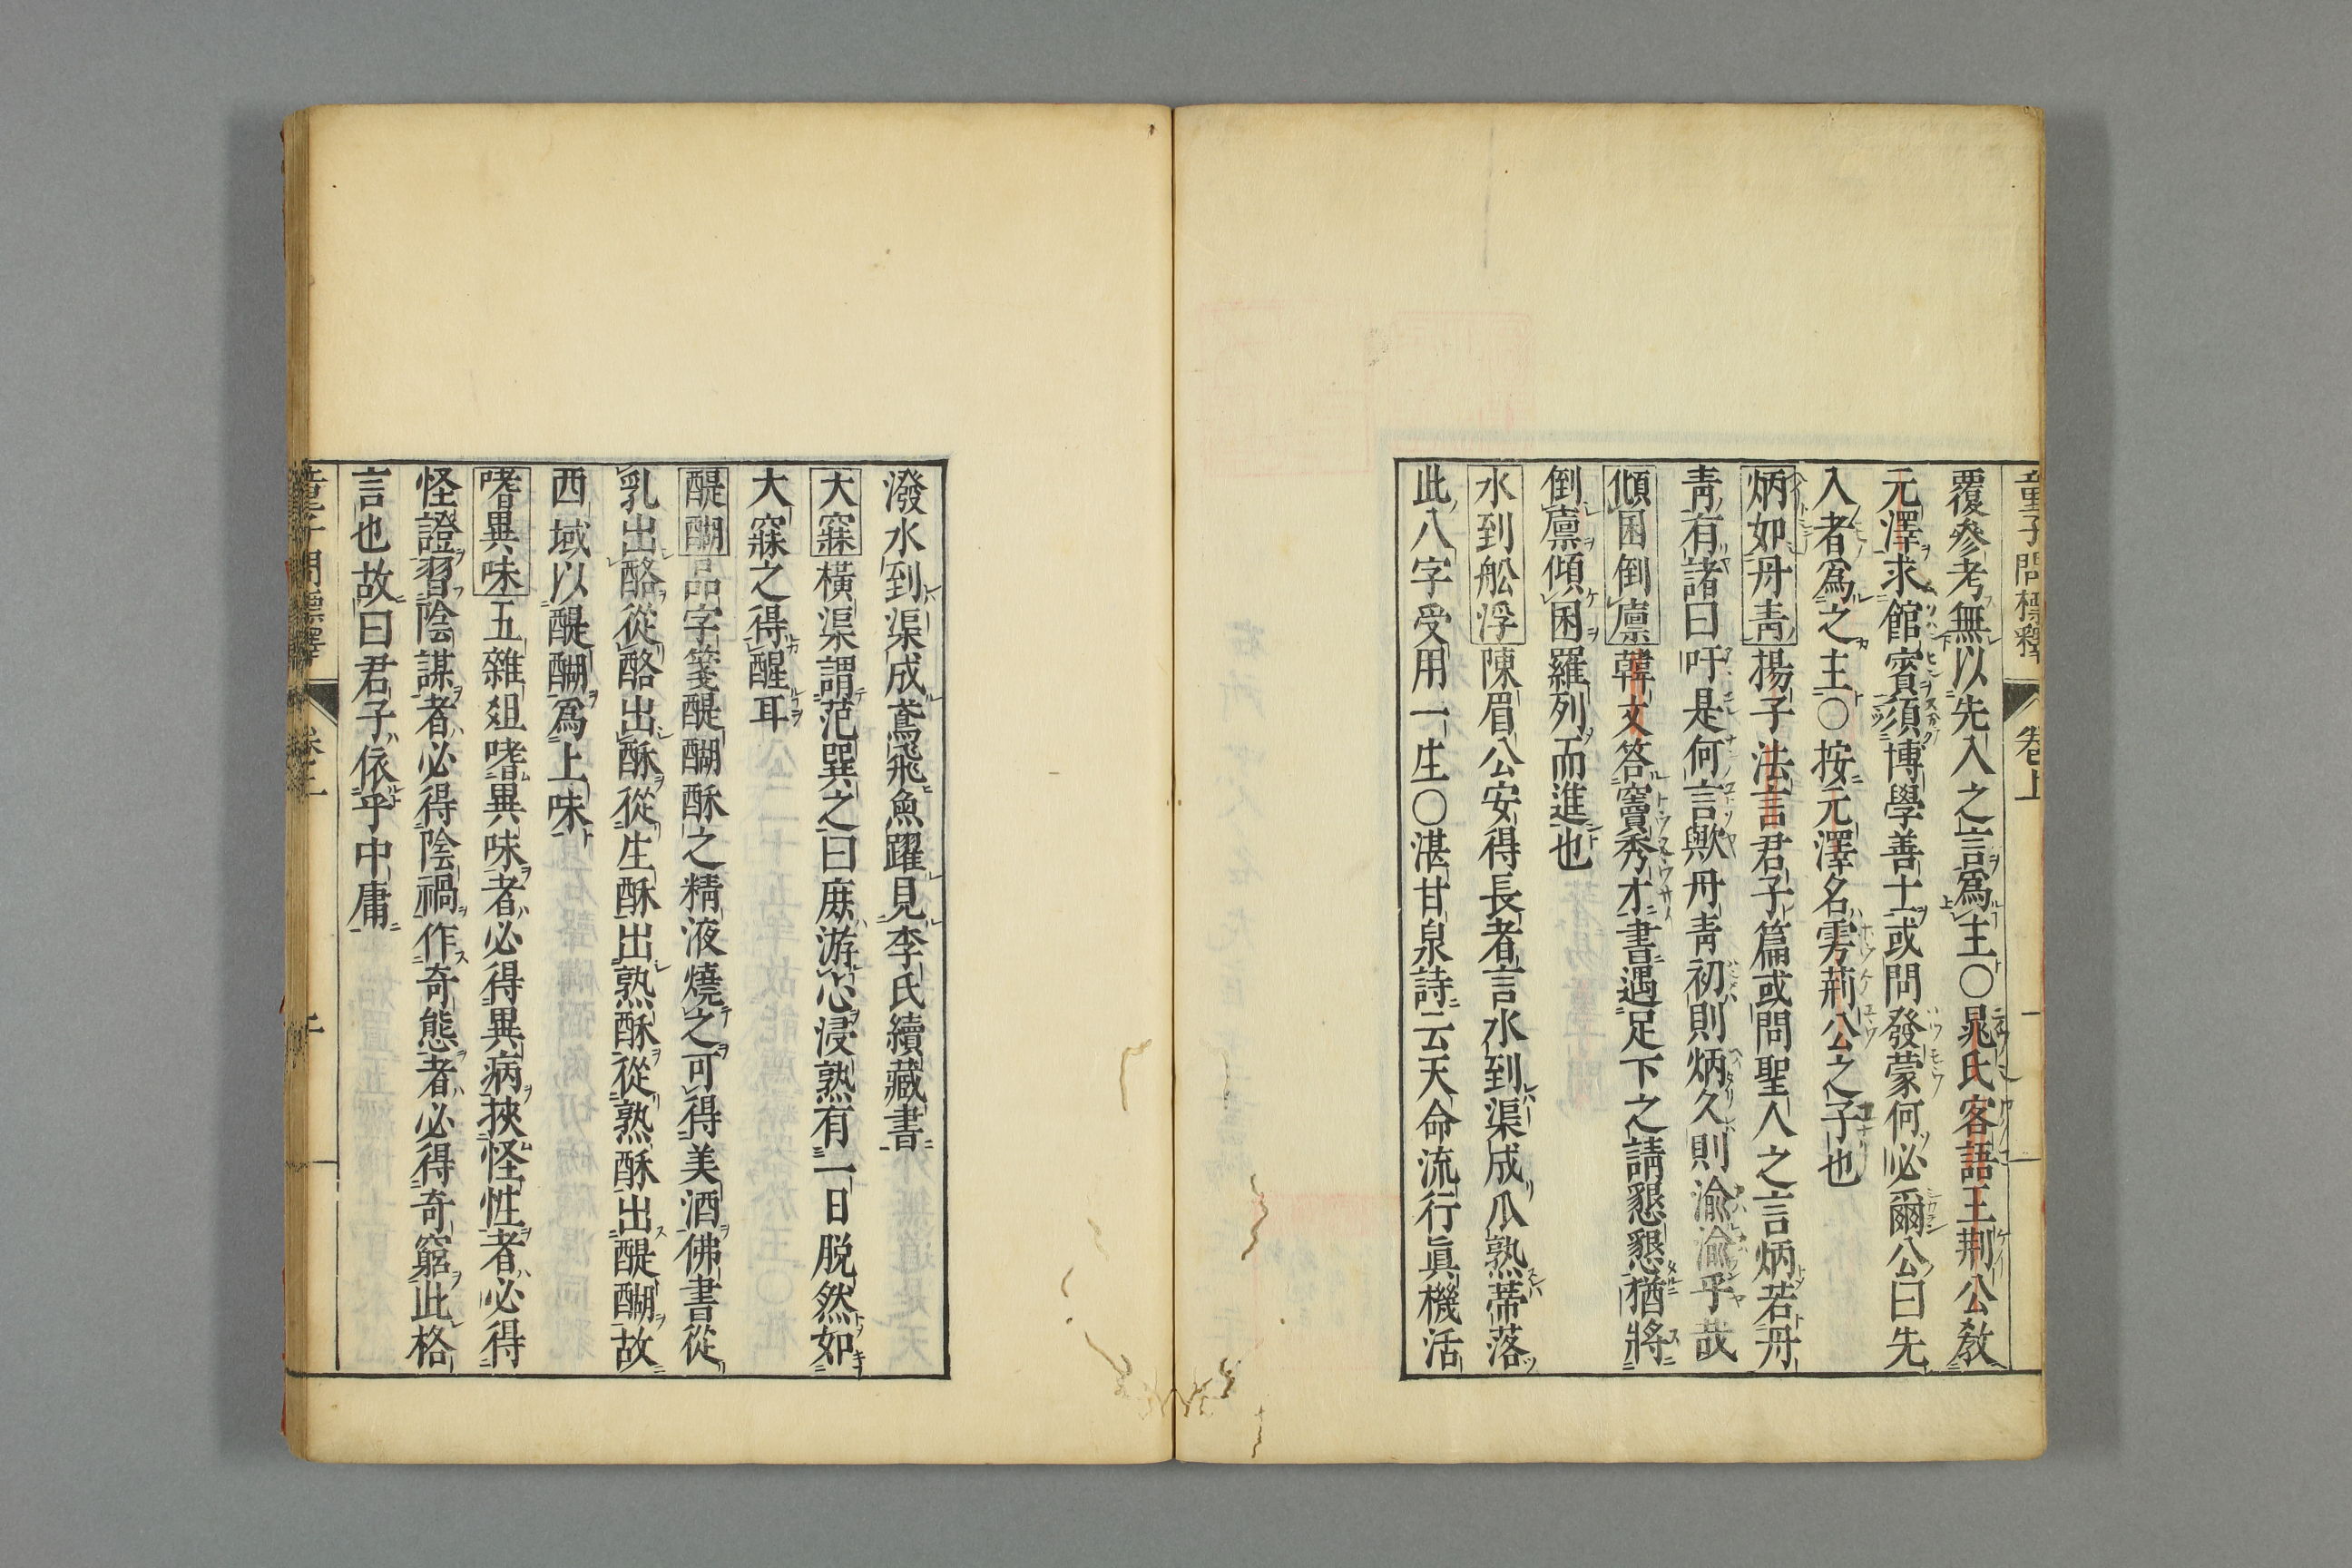 童子問標釋 卷上 一
覆參考無以先入之言爲主○晁氏客語王荆公敎
元澤求館賓須博學善士或問發蒙何必爾公曰先
入者爲之主○按元澤名雱荊公之子也
炳如丹靑揚子法言君子篇或問聖人之言炳若丹
靑有諸曰吁是何言歟丹靑初則炳久則渝渝乎哉
傾囷倒廩韓文答竇秀才書遇足下之請懇懇猶將
倒廩傾囷羅列而進也
水到舩浮陳眉公安得長者言水到渠成瓜熟蒂落
此八字受用一生○湛甘泉詩云天命流行眞機活
潑水到渠成鳶飛魚躍見李氏續藏書
大寐橫渠謂范巽之曰庶游心浸熟有一日脱然如
大寐之得醒耳
醍醐品字箋醍醐酥之精液燒之可得美酒佛書從
乳出酪從酪出酥從生酥出熟酥從熟酥出醍醐故
西域以醍醐爲上味
嗜異味五雜爼嗜異味者必得異病挾怪性者必得
怪證習陰謀者必得陰禍作奇態者必得奇窮此格
言也故曰君子依乎中庸
童子問標釋